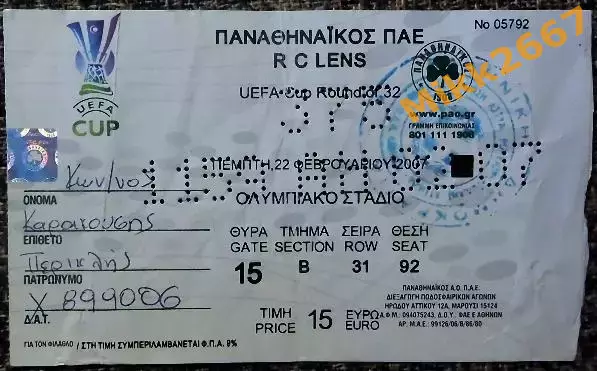 No 05792
ΠΑΝΑΘΗΝΑΪΚΟΣ ΠΑΕ
R C LENS
UEFA Cup Round of 32
UEFA
CUP
ΠΑΝΑΘΗΝΑΪΚΟΣ
1908
www.pao.gr
ΓΡΑΜΜΗ ΕΠΙΚΟΙΝΩΝΙΑΣ
801 111 1908
Mikk2667
ΠΕΜΠΤΗ, 22 ΦΕΒΡΟΥΑΡΙΟΥ 2007
ΟΛΥΜΠΙΑΚΟ ΣΤΑΔΙΟ
Κων/νος
ΟΝΟΜΑ
ΕΠΙΘΕΤΟ
Περικλής
ΠΑΤΡΩΝΥΜΟ
Χ 899006
Δ.Α.Τ.
ΘΥΡΑ ΤΜΗΜΑ ΣΕΙΡΑ ΘΕΣΗ
GATE SECTION ROW SEAT
15 B 31 92
ΤΙΜΗ ΕΥΡΩ
PRICE 15 EURO
ΠΑΝΑΘΗΝΑΪΚΟΣ Α.Ο. Π.Α.Ε.
ΔΙΕΞΑΓΩΓΗ ΠΟΔΟΣΦΑΙΡΙΚΩΝ ΑΓΩΝΩΝ
ΗΡΟΔΟΥ ΑΤΤΙΚΟΥ 12Α, ΜΑΡΟΥΣΙ 15124
Α.Φ.Μ. 094075243, Δ.Ο.Υ. ΦΑΕ Ε ΑΘΗΝΩΝ
ΑΡ. Μ.Α.Ε.: 99126/06/Β/86/80
ΓΙΑ ΤΟΝ ΦΙΛΑΘΛΟ / ΣΤΗ ΤΙΜΗ ΣΥΜΠΕΡΙΛΑΜΒΑΝΕΤΑΙ Φ.Π.Α. 9%